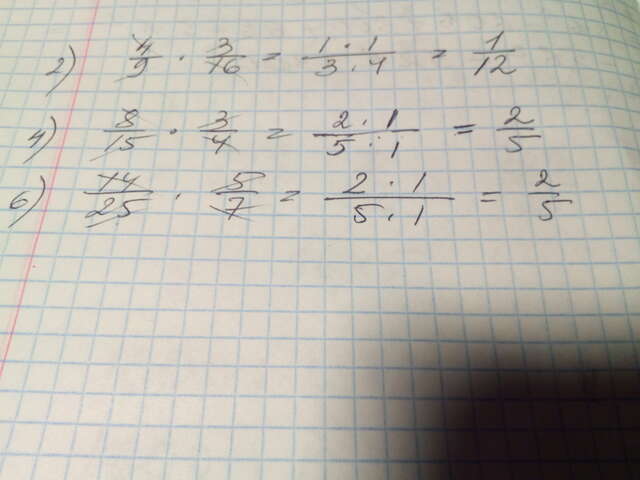 2) 4/9 · 3/16 = 1·1/3·4 = 1/12
4) 8/15 · 3/4 = 2·1/5·1 = 2/5
6) 14/25 · 5/7 = 2·1/5·1 = 2/5